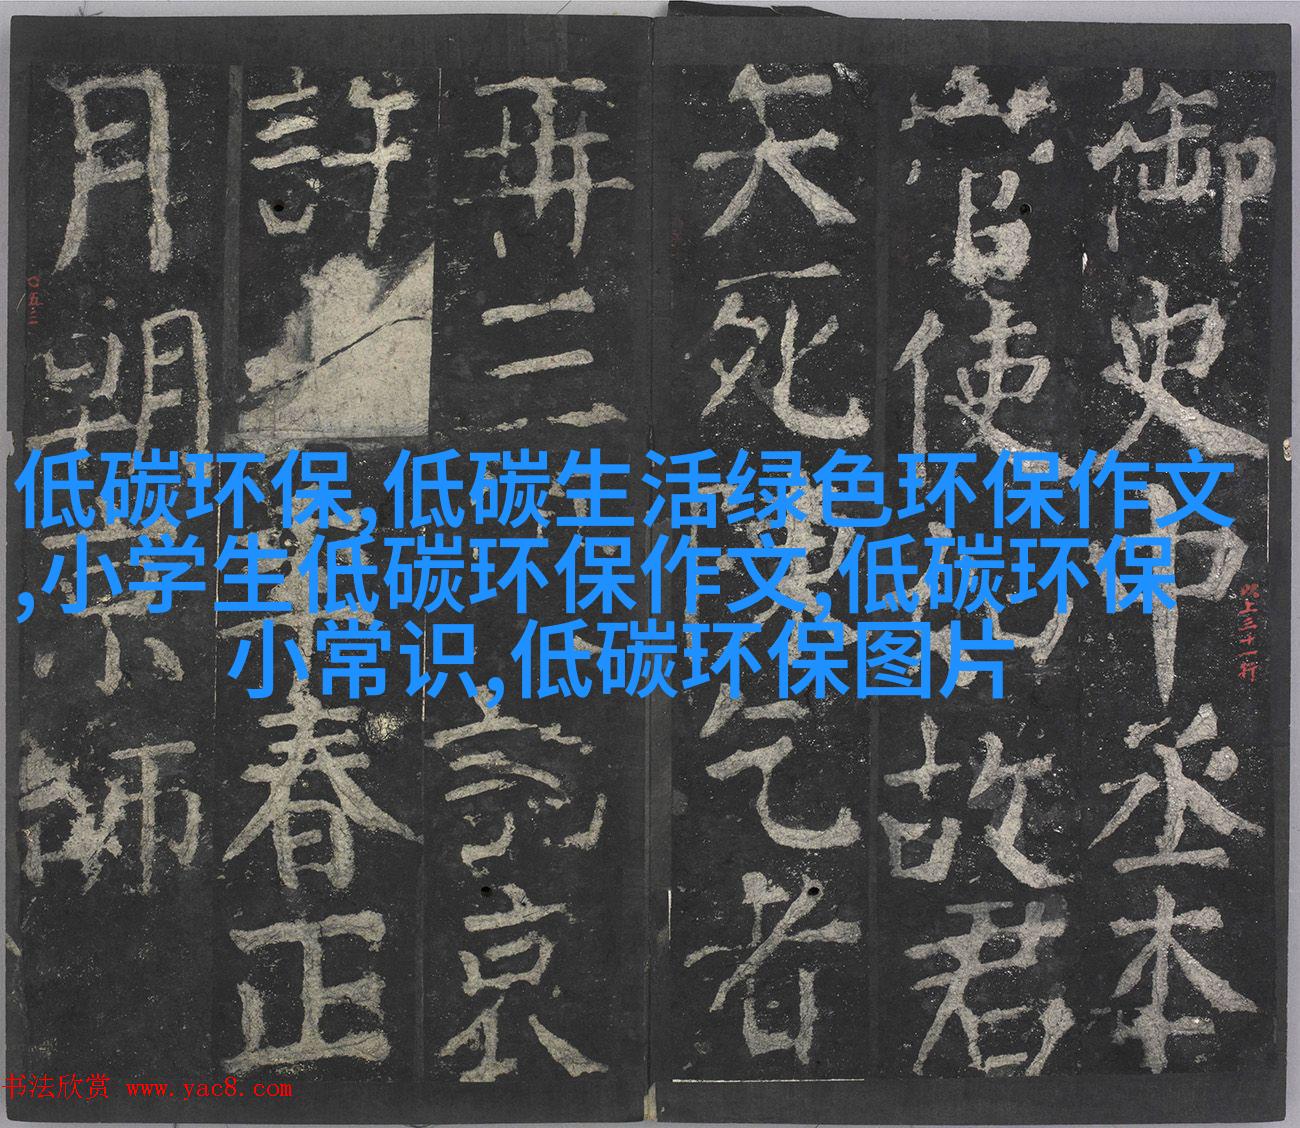 低碳环保,低碳生活绿色环保作文
,小学生低碳环保作文,低碳环保
小常识,低碳环保图片
御史中丞本
使故君
死乞者
再三京
許春正
月朔京師
此上三十一行
〇五三
书法欣赏 www.yac8.com